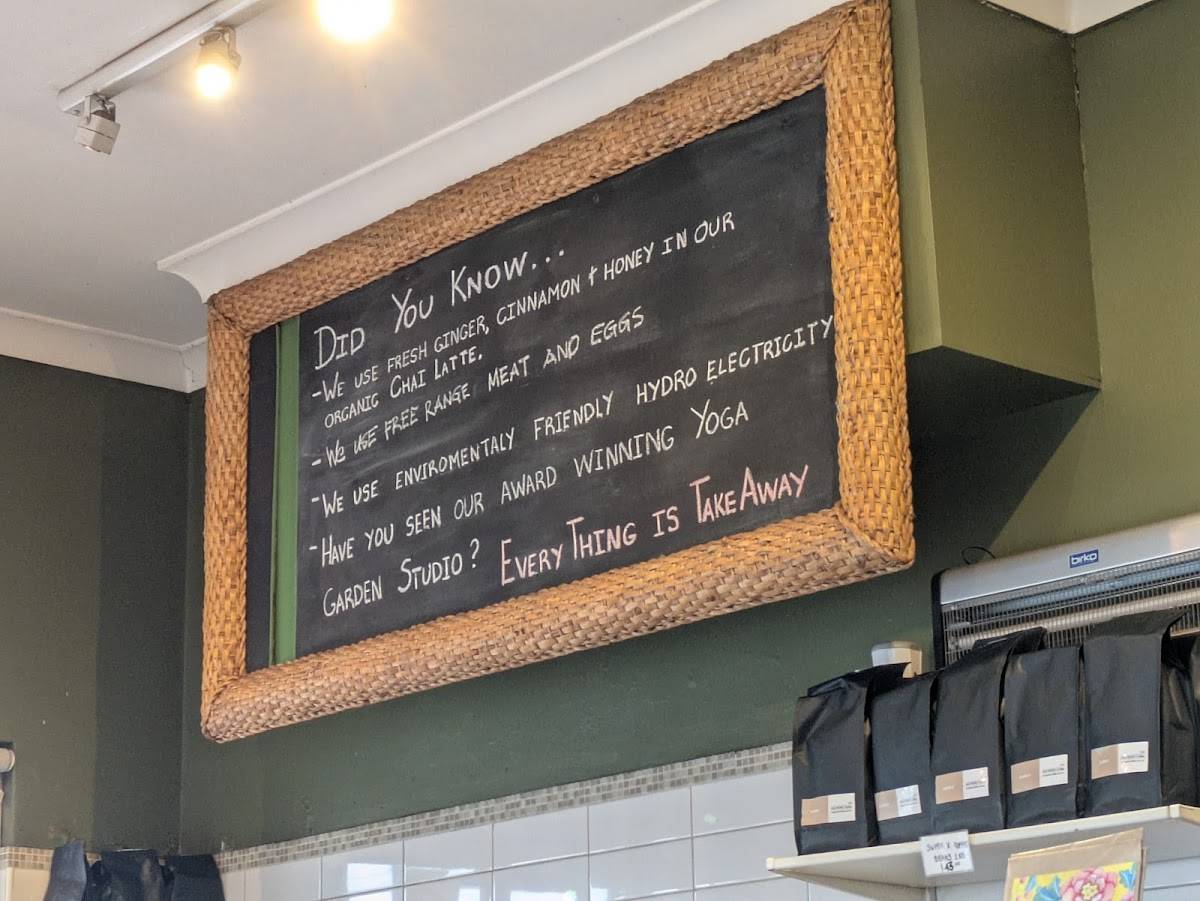 DID YOU KNOW...
-WE USE FRESH GINGER, CINNAMON & HONEY IN OUR
ORGANIC CHAI LATTE.
-WE USE FREE RANGE MEAT AND EGGS
-WE USE ENVIROMENTALY FRIENDLY HYDRO ELECTRICITY
-HAVE YOU SEEN OUR AWARD WINNING YOGA
GARDEN STUDIO? EVERYTHING IS TAKEAWAY
birko